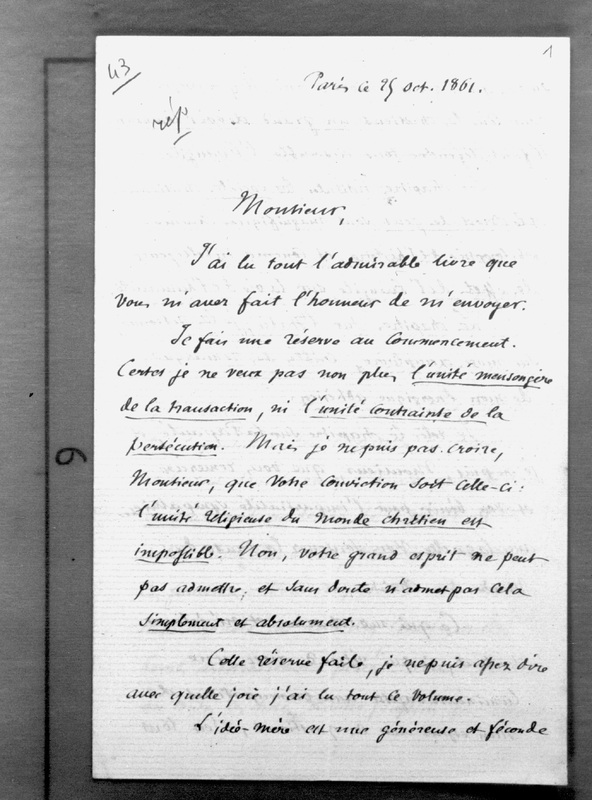 43
1
Paris le 25 oct. 1861.
rép
Monsieur,
J'ai lu tout l'admirable livre que
vous m'avez fait l'honneur de m'envoyer.
Je fais une réserve au commencement.
Certes je ne veux pas non plus, l'unité mensongère
de la transaction, ni l'unité contrainte de la
persécution. Mais je ne puis pas croire,
Monsieur, que votre conviction soit celle-ci:
l'unité religieuse du monde chrétien est
impossible. Non, votre grand esprit ne peut
pas admettre, et sans doute n'admet pas cela
simplement et absolument.
Cette réserve faite, je ne puis assez dire
avec quelle joie j'ai lu tout ce volume.
L'idée-mère est une généreuse et féconde
9